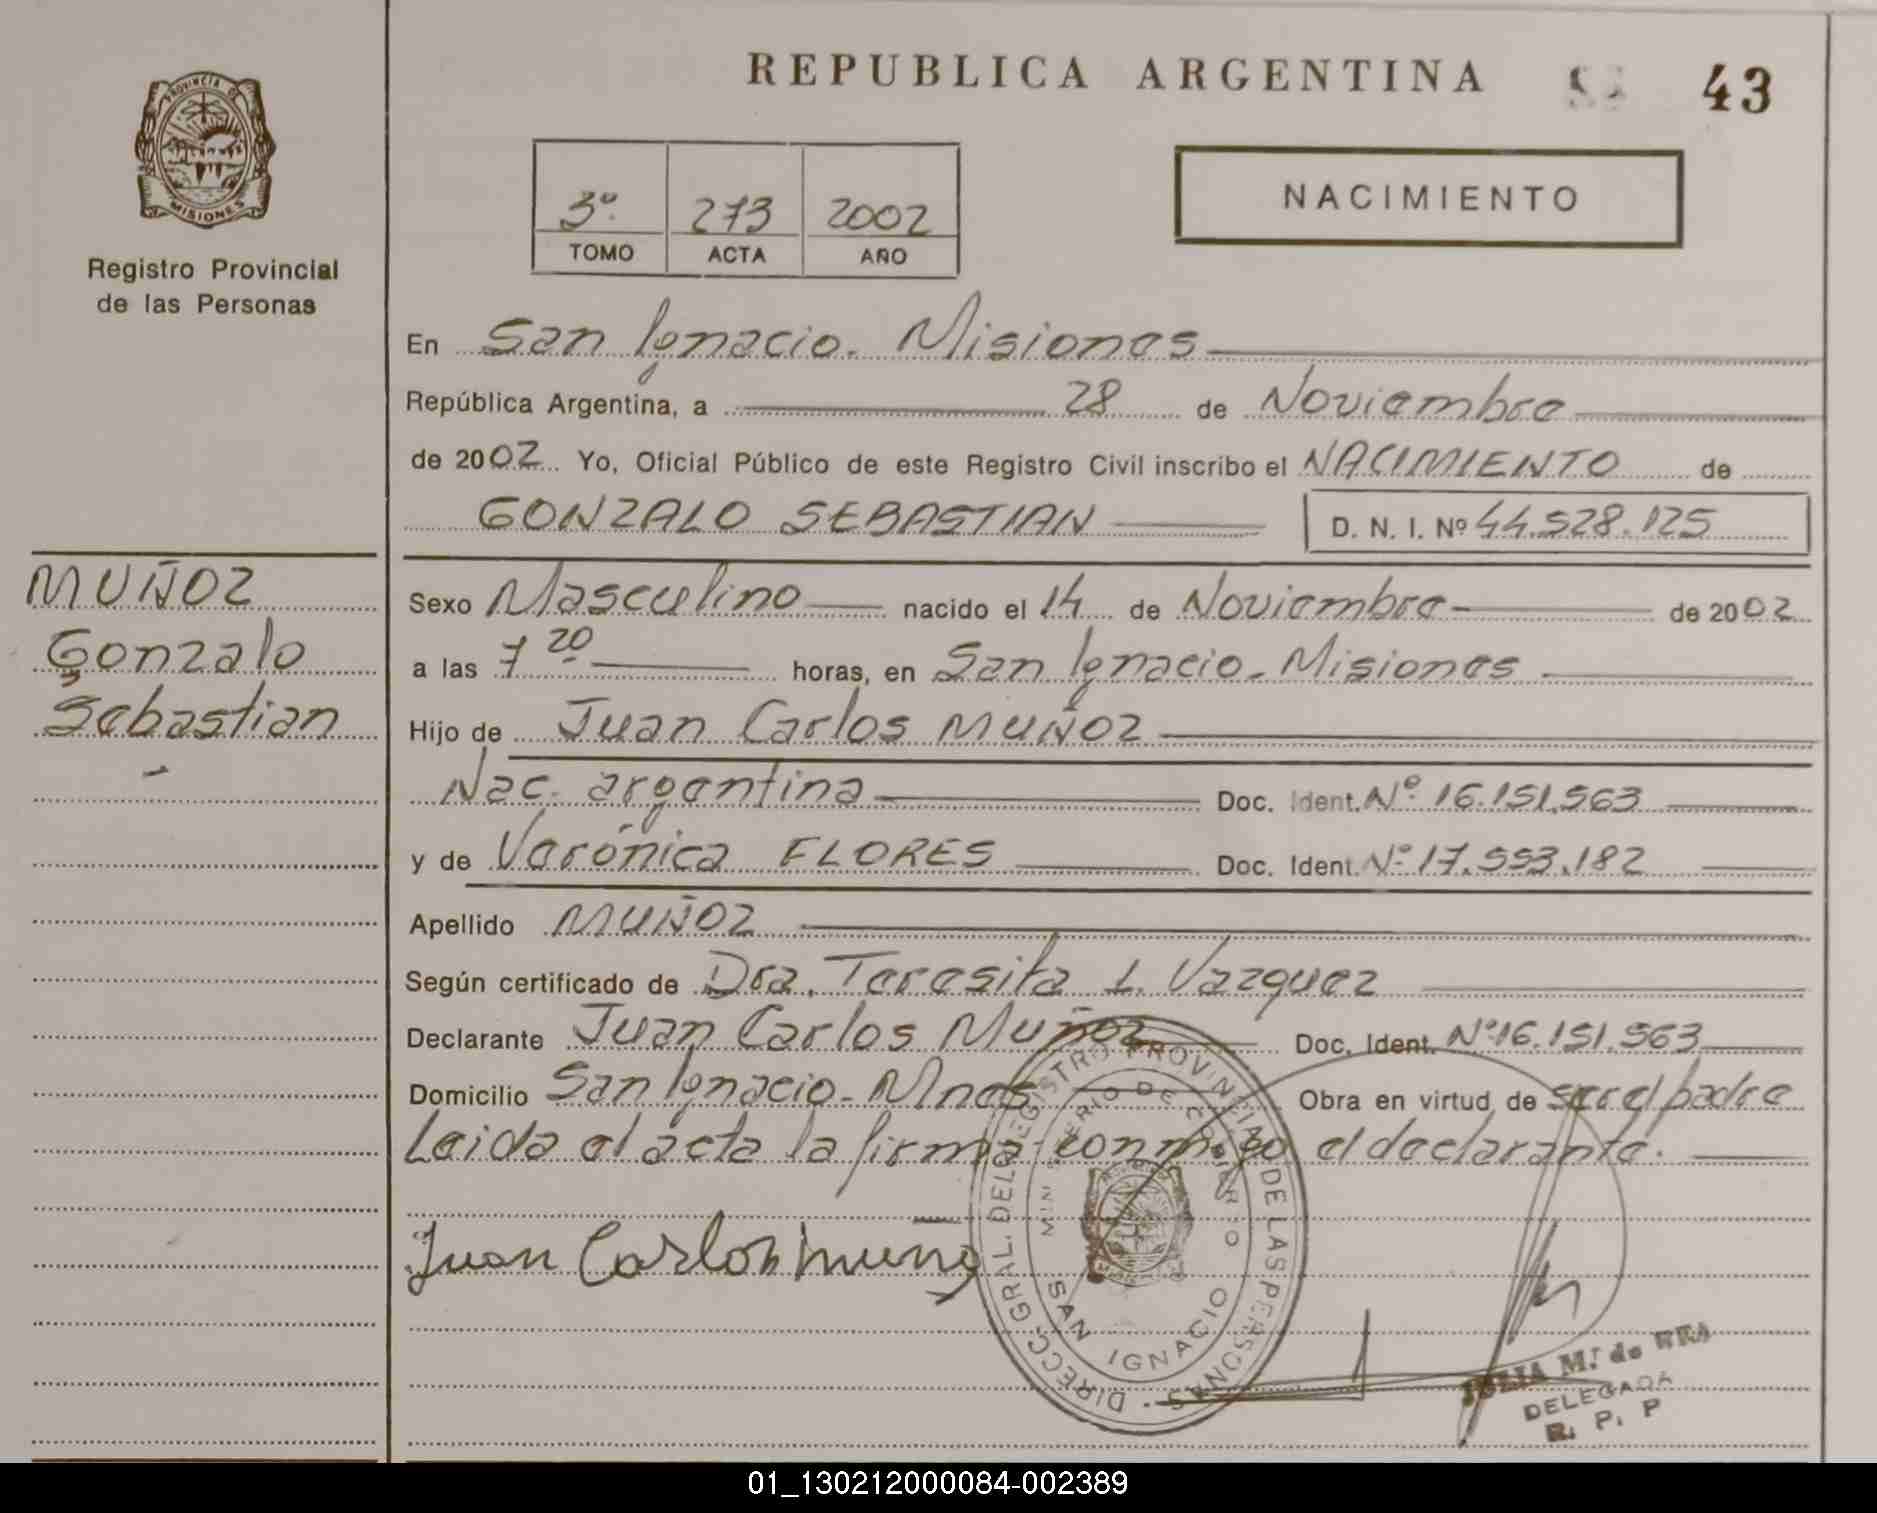 REPUBLICA ARGENTINA 43
PROVINCIA DE
MISIONES
Registro Provincial
de las Personas
3º. 273 2002
TOMO ACTA AÑO
NACIMIENTO
En San Ignacio. Misiones
República Argentina, a 28 de Noviembre
de 2002 Yo, Oficial Público de este Registro Civil inscribo el NACIMIENTO de
GONZALO SEBASTIAN D. N. I. Nº 44.528.125
MUÑOZ
Gonzalo
Sebastian
Sexo Masculino nacido el 14 de Noviembre de 2002
a las 7 20 horas, en San Ignacio. Misiones
Hijo de Juan Carlos MUÑOZ
Nac. argentina Doc. Ident. Nº 16.151.563
y de Verónica FLORES Doc. Ident. Nº 17.553.182
Apellido MUÑOZ
Según certificado de Dra. Teresita L. Vazquez
Declarante Juan Carlos Muñoz Doc. Ident. Nº 16.151.563
Domicilio San Ignacio - Mnes Obra en virtud de ser el padre
Leida el acta la firma conmigo el declarante.
Juan Carlos muñoz
DIRECC. GRAL. DEL REGISTRO PROVINCIAL DE LAS PERSONAS
SAN IGNACIO
JULIA Mª. de
DELEGADA
R. P. P
01_130212000084-002389